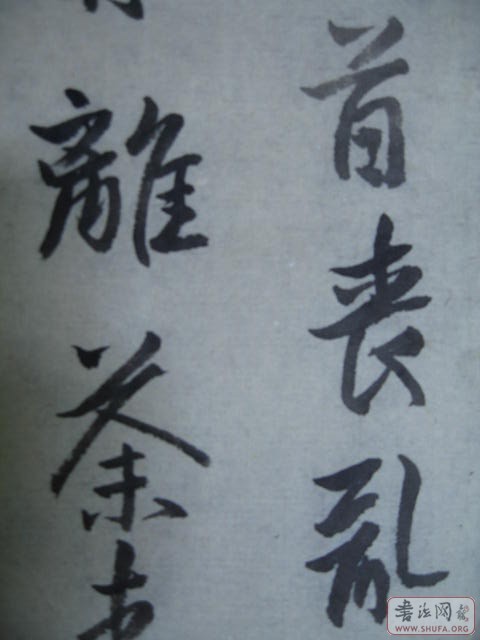 首喪亂
離荼
書法网
WWW.SHUFA.ORG